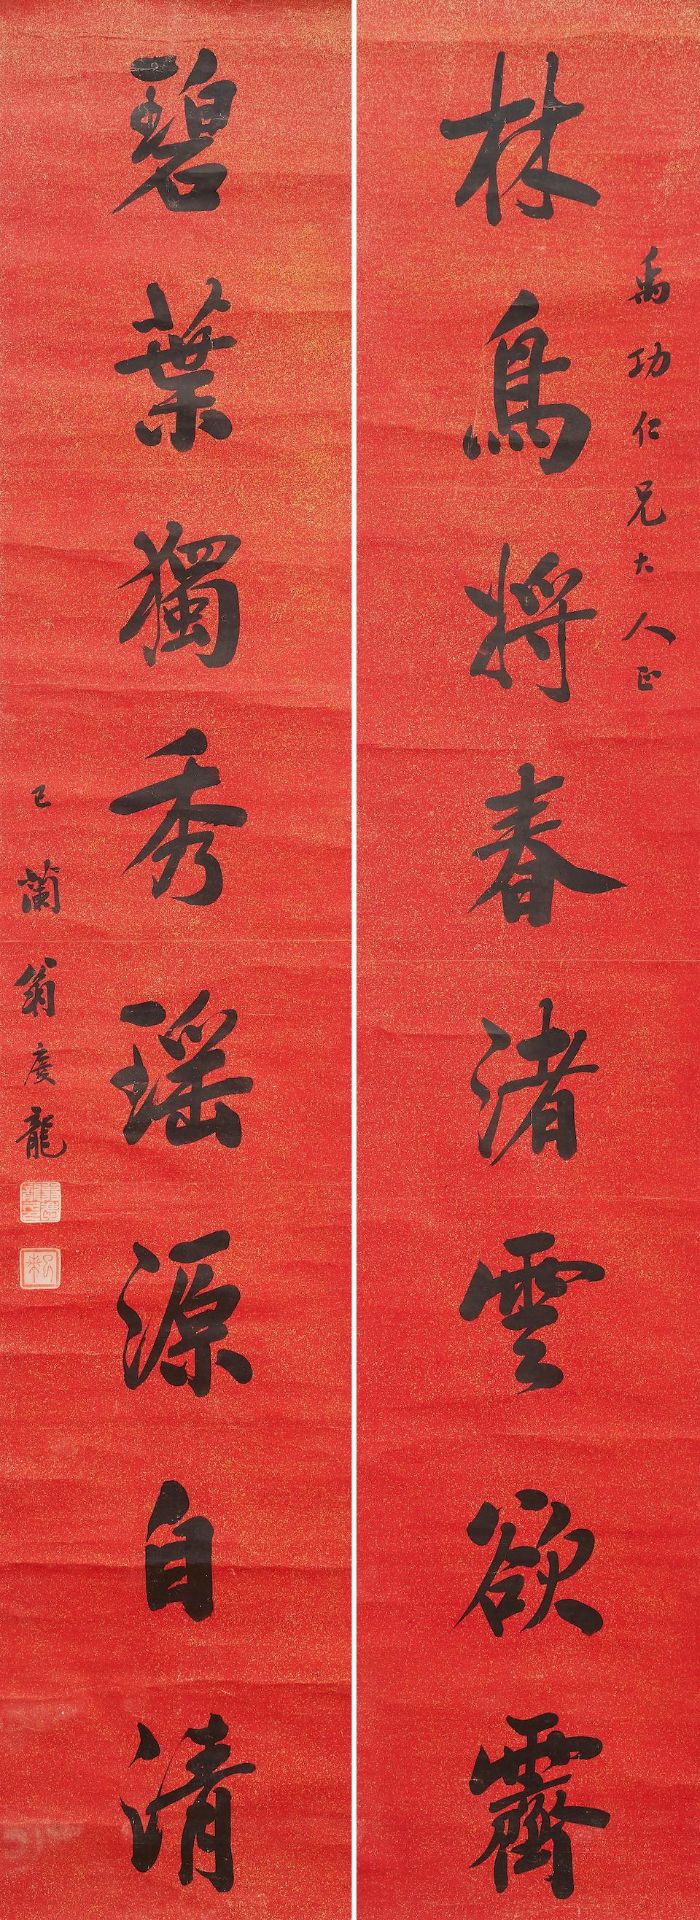 林鳥將春渚雲欲霽
禹功仁兄大人正
碧葉獨秀瑶源自清
巳蘭翁慶龍